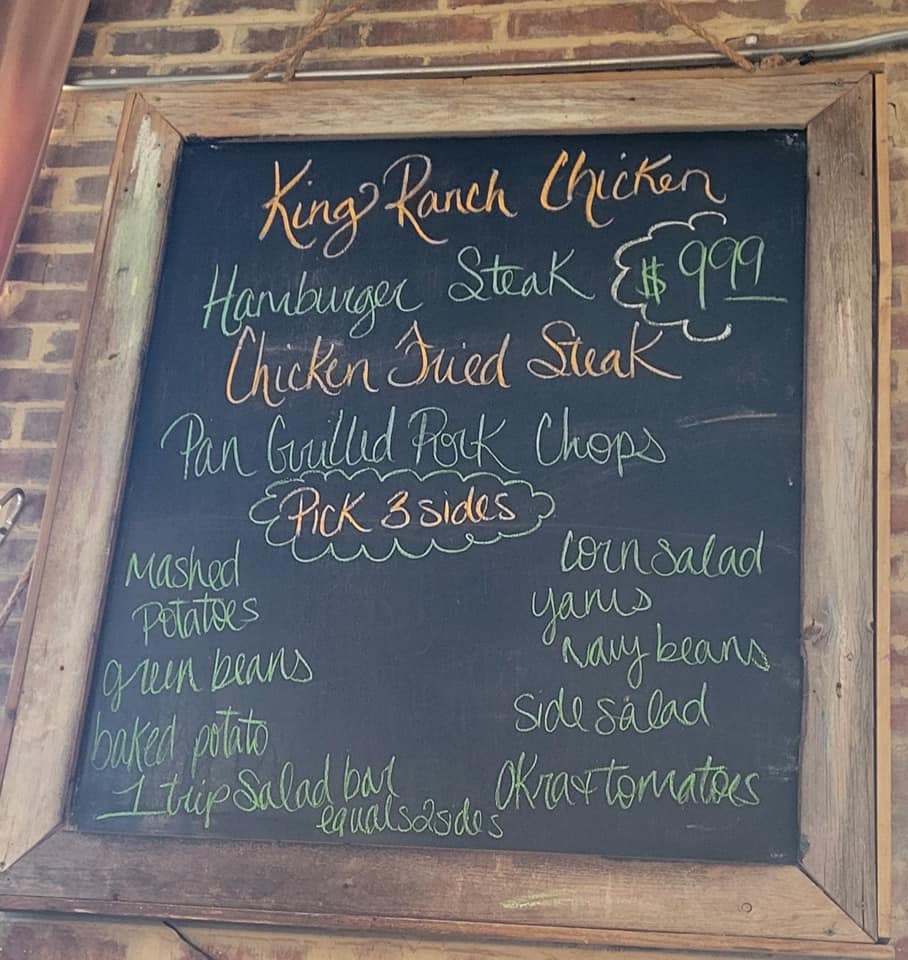 King Ranch Chicken
Hamburger Steak $999
Chicken Fried Steak
Pan Grilled Pork Chops
Pick 3 sides
Mashed
Potatoes
green beans
baked potato
1 trip Salad bar
equals 2 sides
corn salad
yams
navy beans
side salad
Okra + tomatoes